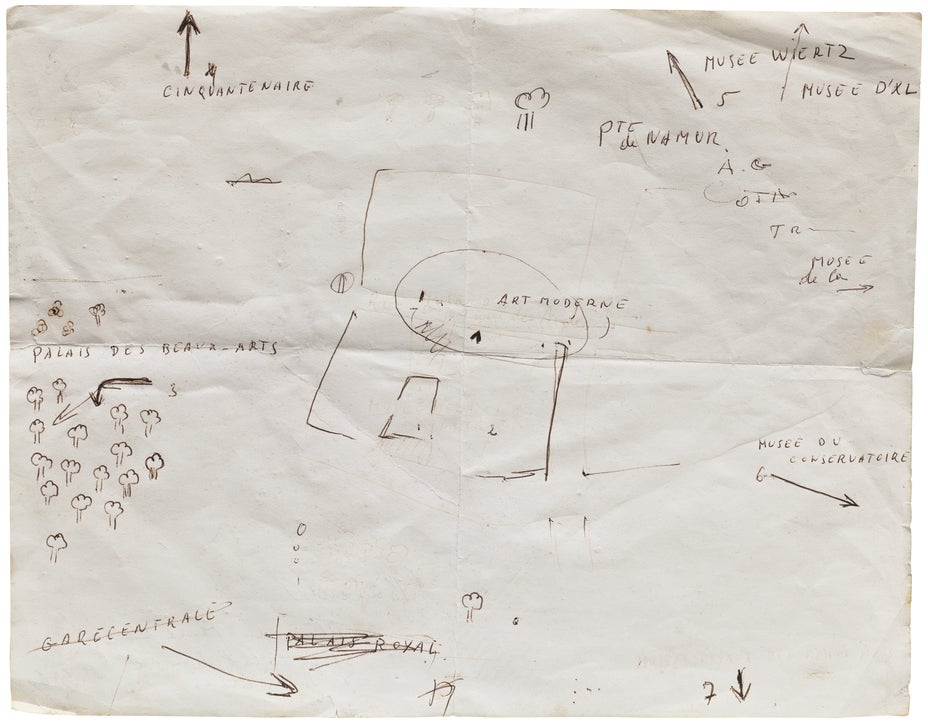 4
CINQUANTENAIRE
MUSEE WIERTZ
5
MUSEE D'XL
PTE
de NAMUR.
A.G
TR
MUSEE
de la
ART MODERNE
PALAIS DES BEAUX-ARTS
3
2
MUSEE DU
CONSERVATOIRE
6
GARE CENTRALE
PALAIS ROYAL
7